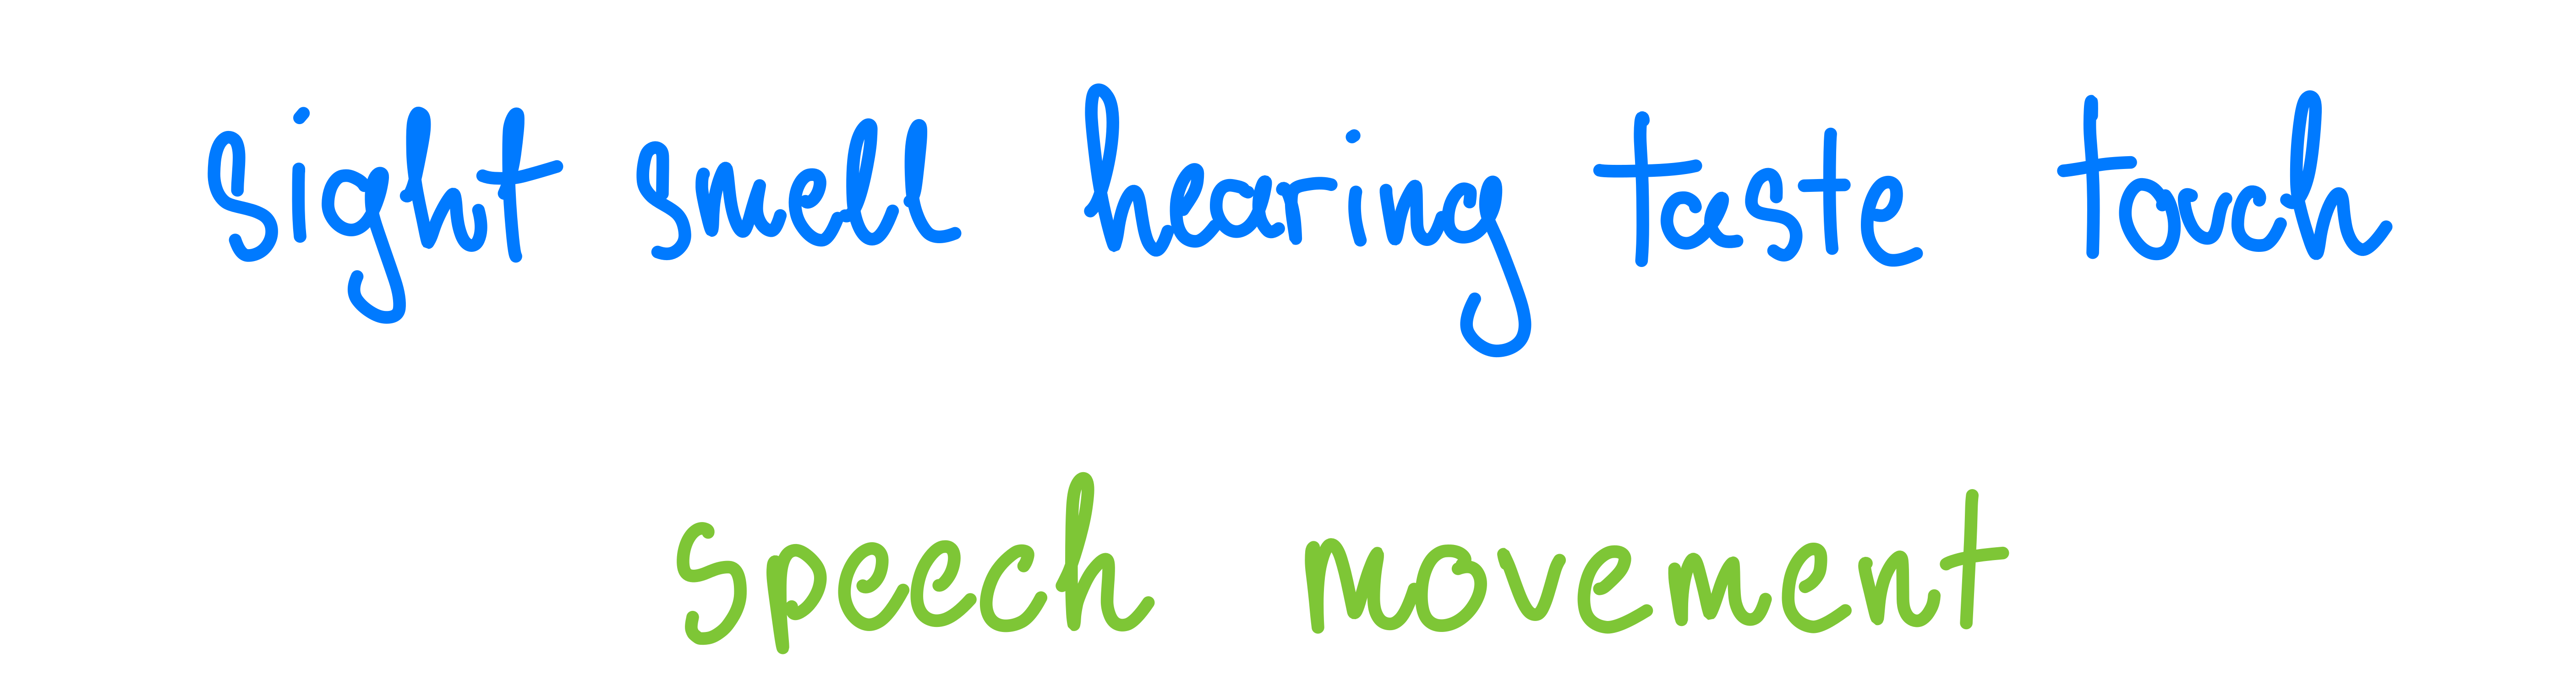 sight smell hearing taste touch
speech movement